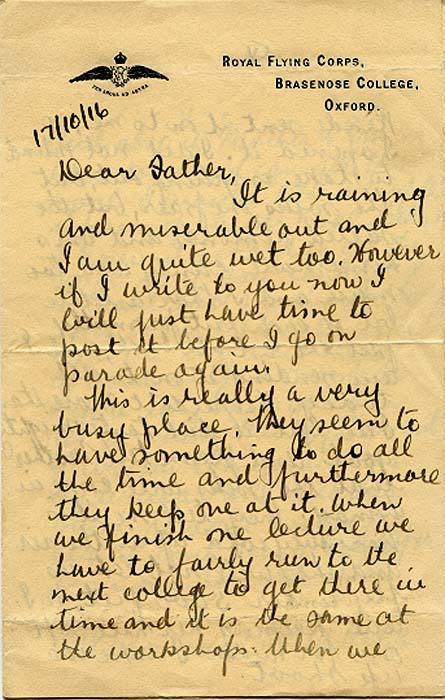 ROYAL FLYING CORPS,
BRASENOSE COLLEGE,
OXFORD.
PER ARDUA AD ASTRA
17/10/16
Dear Father,
It is raining
and miserable out and
I am quite wet too. However
if I write to you now I
will just have time to
post it before I go on
parade again.
This is really a very
busy place. They seem to
have something to do all
the time and furthermore
they keep one at it. When
we finish one lecture we
have to fairly run to the
next college to get there in
time and it is the same at
the workshops. When we